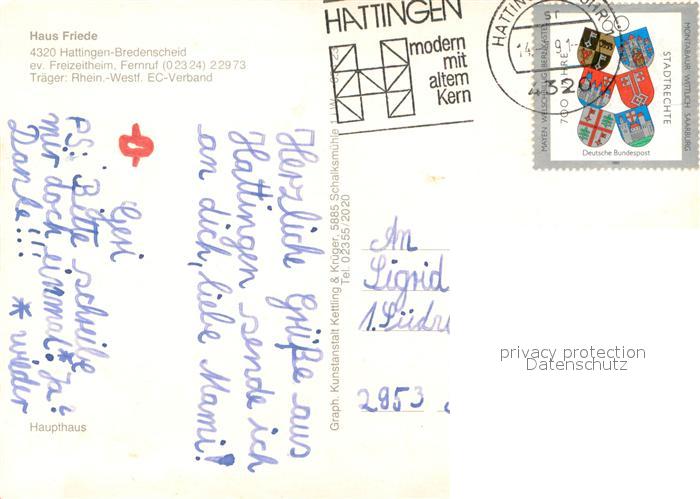 Haus Friede
4320 Hattingen-Bredenscheid
ev. Freizeitheim, Fernruf (0 23 24) 2 29 73
Träger: Rhein.-Westf. EC-Verband
HATTINGEN
modern
mit
altem
Kern
HATTINGEN
4320
700 JAHRE
STADTRECHTE
MONTABAUR WITTLICH SAARBURG
MAYEN WELSCHBILLIG BERNKASTEL
Deutsche Bundespost
Herzliche Grüße aus
Hattingen sende ich
an dich, liebe Mami!
Gesi
PS: Bitte schreibe
mir doch einmal* Ja?
Danke!!! * wieder
Graph. Kunstanstalt Kettling & Krüger, 5885 Schalksmühle 1
Tel. 02355/2020
An
Sigrid
1. Südr
2953
Haupthaus
privacy protection
Datenschutz